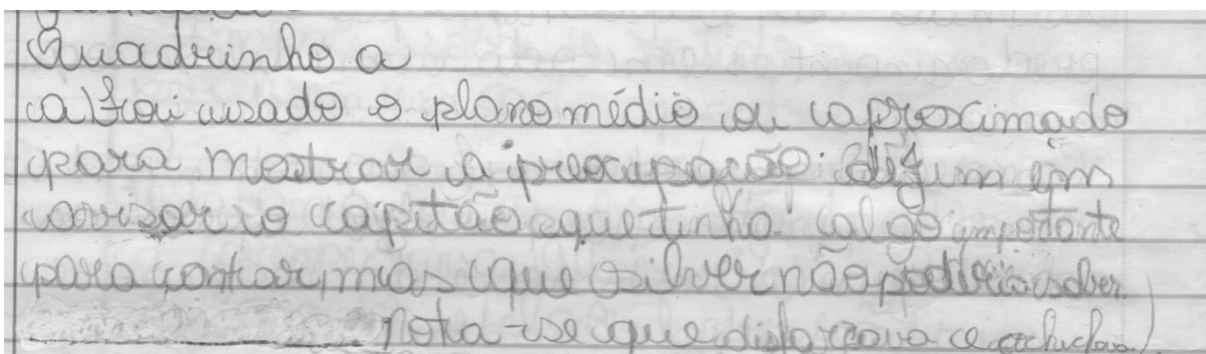 Quadrinho a
a) Foi usado o plano médio ou aproximado
para mostrar a preocupação de Jim em
avisar o capitão que tinha algo importante
para contar, mas que Silver não poderia saber.
Nota-se que disfarçava e